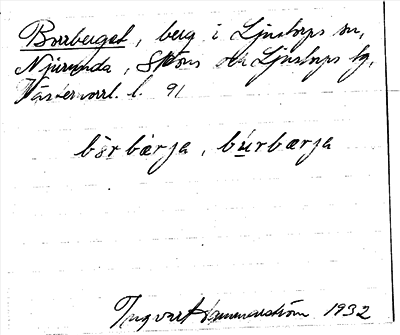 Borrberget, berg i Ljustorps sn,
Njurunda, Sköns och Ljustorps tg,
Västernorrl. l. 91
bŏrbærja, búrbærja
Ingvart Hammarström 1932